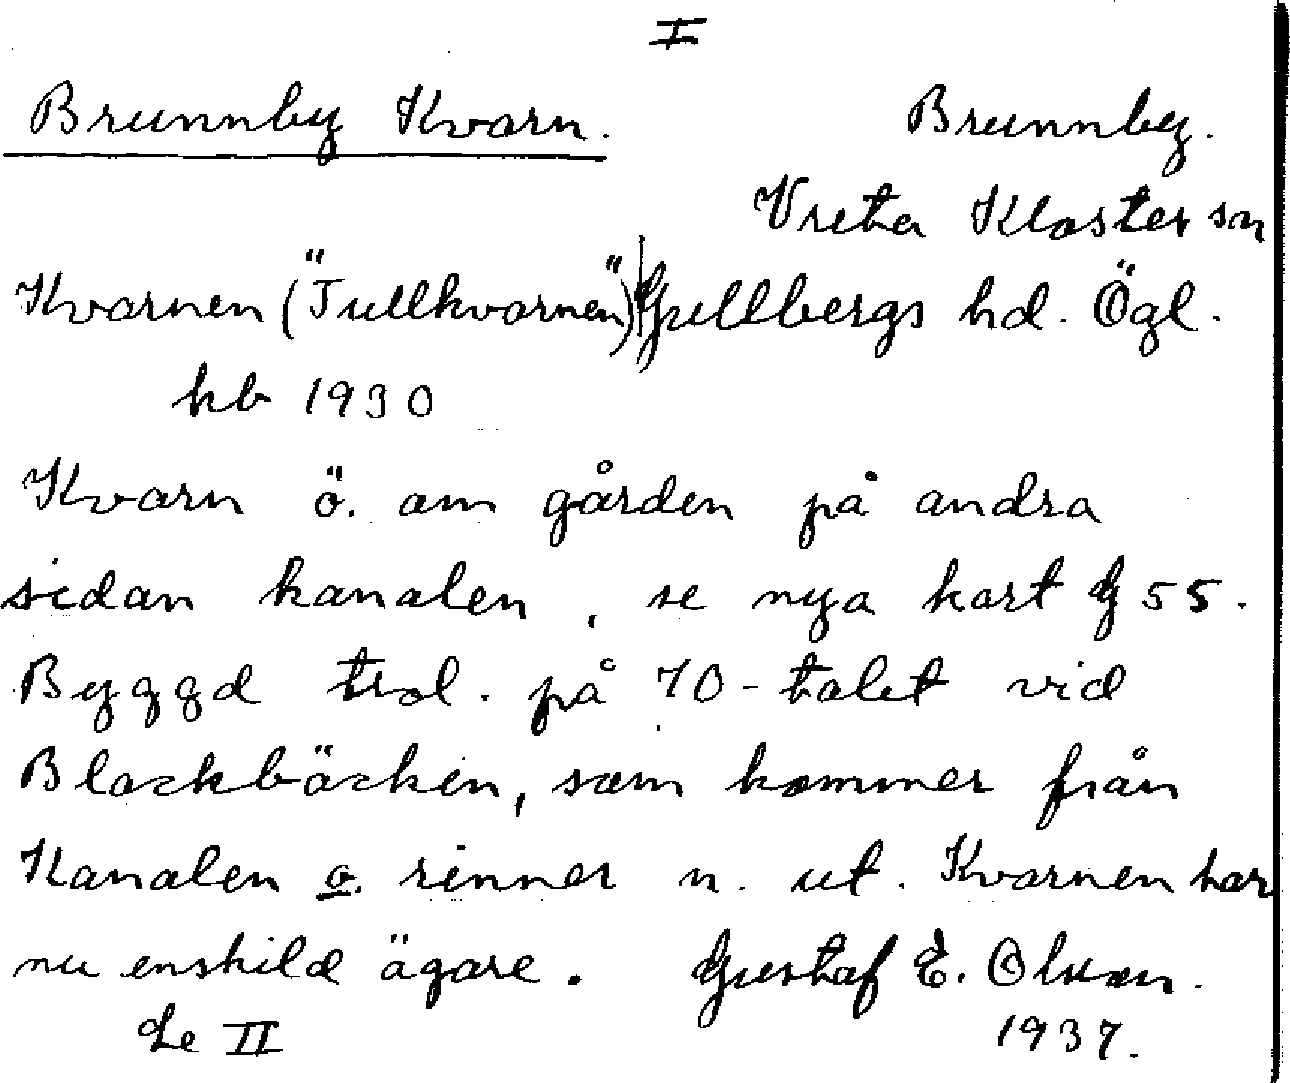 I
Brunnby Kvarn. Brunnby.
Vreta Kloster sn
Kvarnen ("Tullkvarnen") Gullbergs hd. Ögl.
kb 1930
Kvarn ö. om gården på andra
sidan kanalen, se nya kart G 55.
Byggd trol. på 70-talet vid
Blackbäcken, som kommer från
Kanalen o. rinner n. ut. Kvarnen har
nu enskild ägare. Gustaf E. Olsson.
Se II 1937.